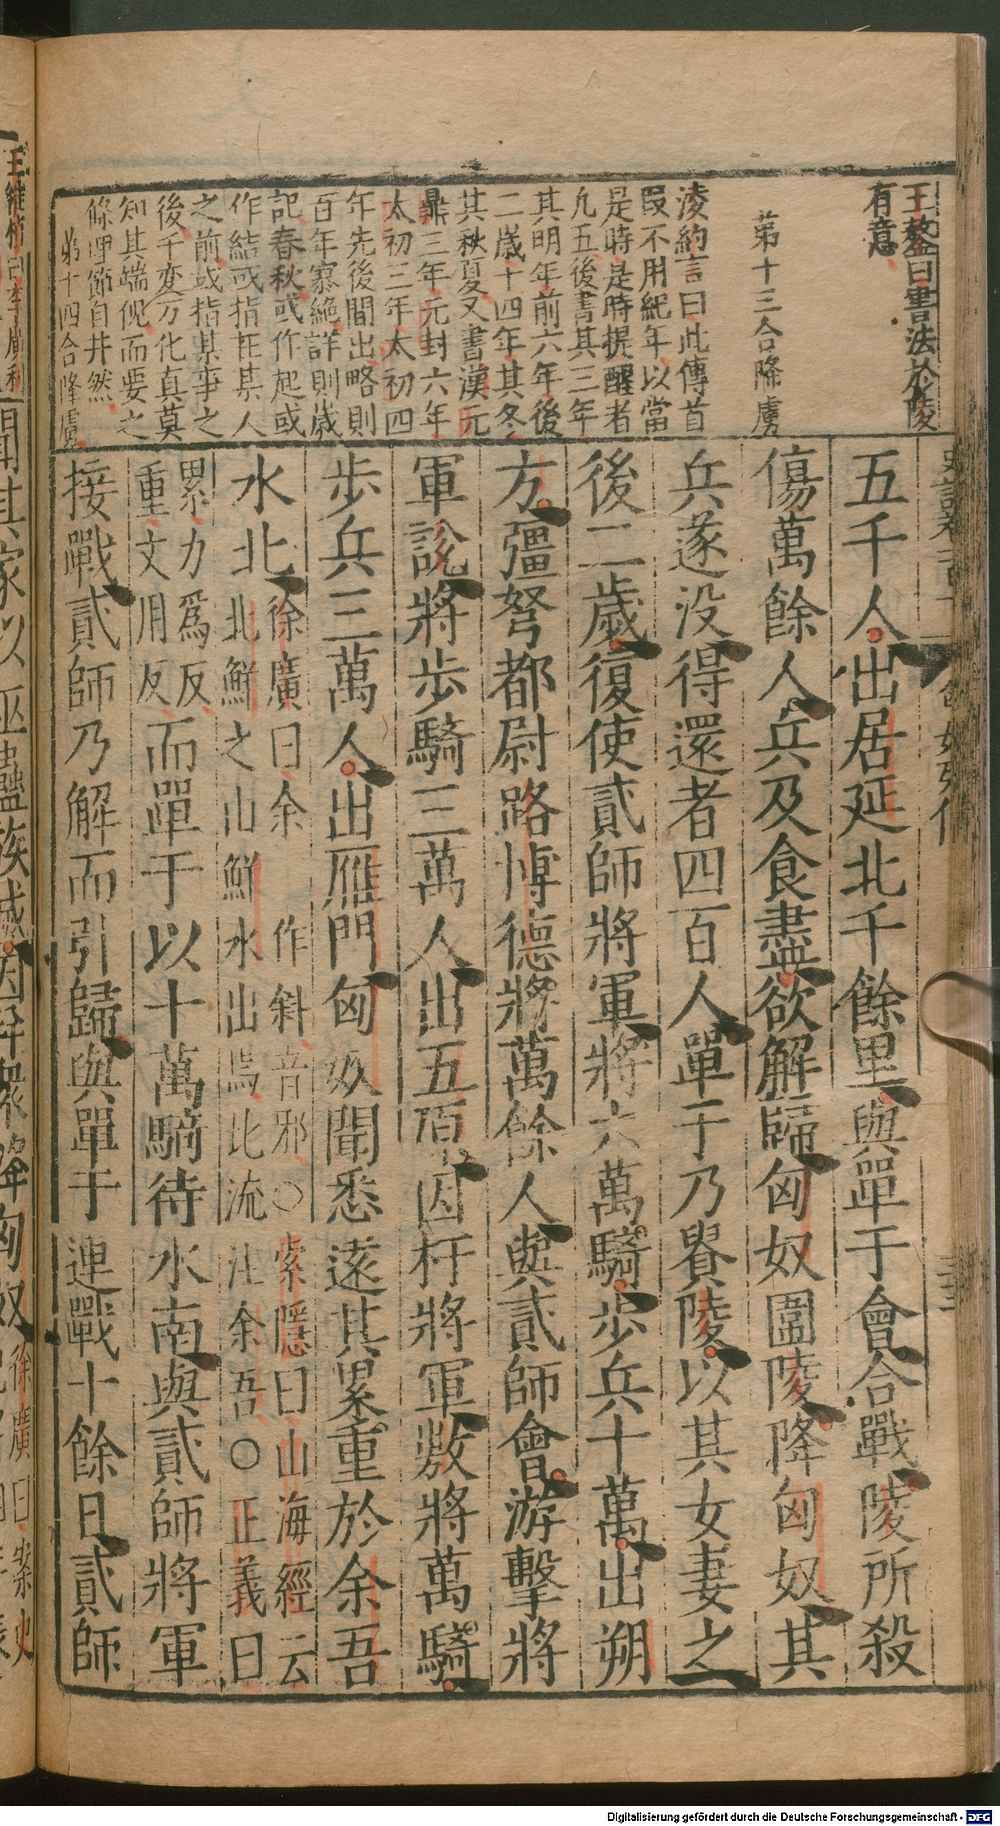 王鏊曰書法於陵
有意
第十三合降虜
淩約言曰此傳首
叚不用紀年以當
是時是時提醒者
凢五後書其三年
其明年前六年後
二歲十四年其冬
其秋夏又書漢元
鼎三年元封六年
太初三年太初四
年先後間出略則
百年寡絶詳則歲
記春秋或作起或
作結或指在某人
之前或指某事之
後千変万化真莫
知其端倪而要之
條理節自井然
第十四合降虜
五千人出居延北千餘里與單于會合戰陵所殺
傷萬餘人兵及食盡欲解歸匈奴圍陵陵降匈奴其
兵遂没得還者四百人單于乃貴陵以其女妻之
後二歲復使貳師將軍將六萬騎步兵十萬出朔
方彊弩都尉路博德將萬餘人與貳師會游擊將
軍說將步騎三萬人出五原因杅將軍敖將萬騎
步兵三萬人出雁門匈奴聞悉遠其累重於余吾
水北徐廣曰余一作斜音邪○索隱曰山海經云
北鮮之山鮮水出焉北流注余吾○正義曰
累力爲反
重丈用反而單于以十萬騎待水南與貳師將軍
接戰貳師乃解而引歸與單于連戰十餘日貳師
聞其家以巫蠱族滅因并衆降匈奴徐廣曰案史
Digitalisierung gefördert durch die Deutsche Forschungsgemeinschaft - DFG